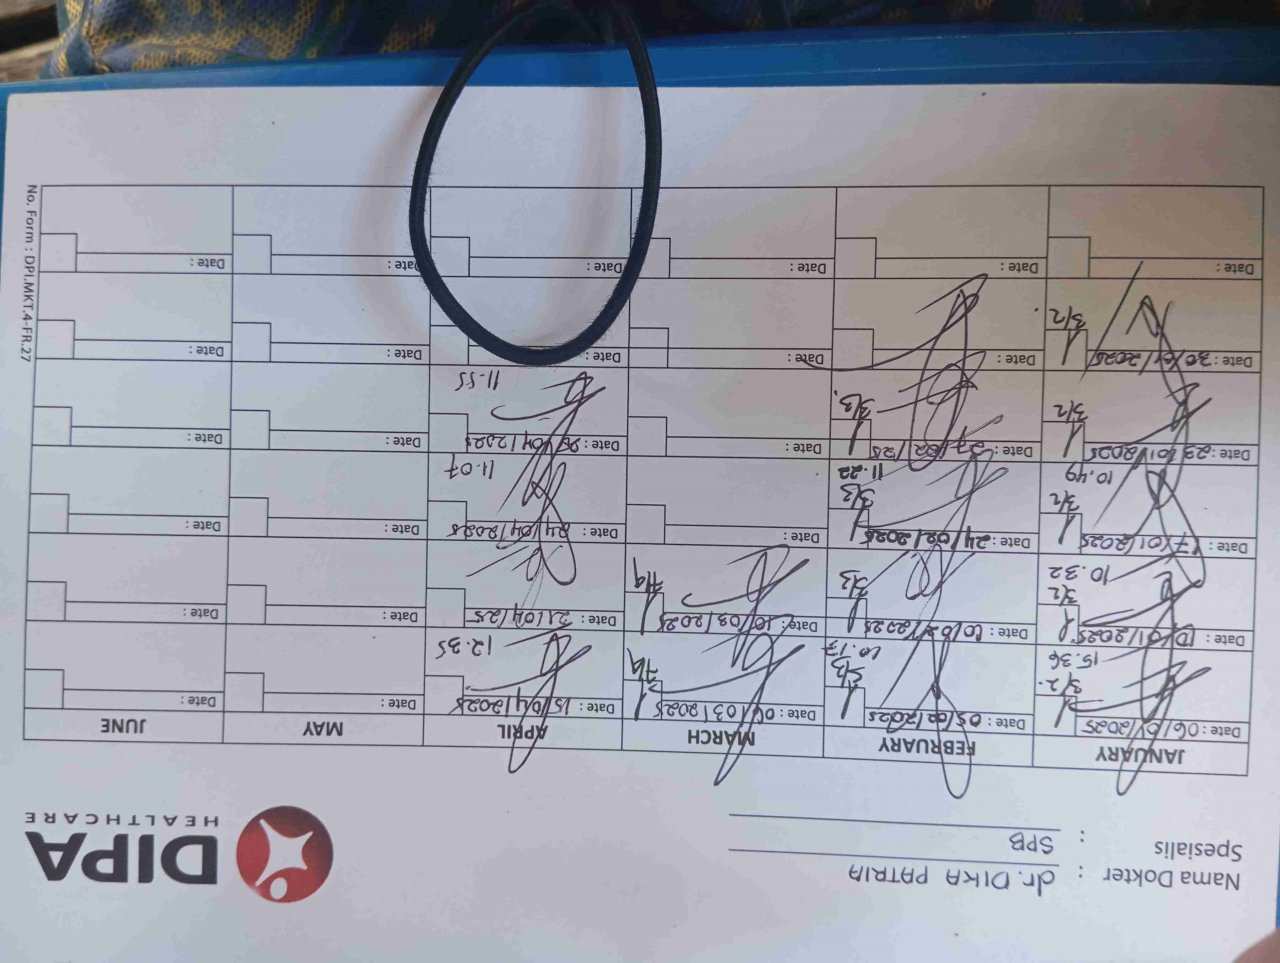 Nama Dokter : dr. DIKA PATRIA
Spesialis : SPB
DIPA
HEALTHCARE
JANUARY FEBRUARY MARCH APRIL MAY JUNE
Date: 06/01/2025 Date: 05/02/2025 Date: 06/03/2025 Date: 15/04/2025 Date: Date:
3/2 3/3 7/4
15.36 10.17 12.35
Date: 10/01/2025 Date: 10/02/2025 Date: 10/03/2025 Date: 21/04/25 Date: Date:
3/2 3/3 7/4
10.32
Date: 17/01/2025 Date: 24/02/2025 Date: Date: 24/04/2025 Date: Date:
3/2 3/3
10.49 11.22 11.07
Date: 23/01/2025 Date: 27/02/25 Date: Date: 28/04/2025 Date: Date:
3/2 3/3
11.55
Date: 30/01/2025 Date: Date: Date: Date:
3/2
Date: Date: Date: Date: Date: Date:
No. Form : DPI.MKT.4-FR.27